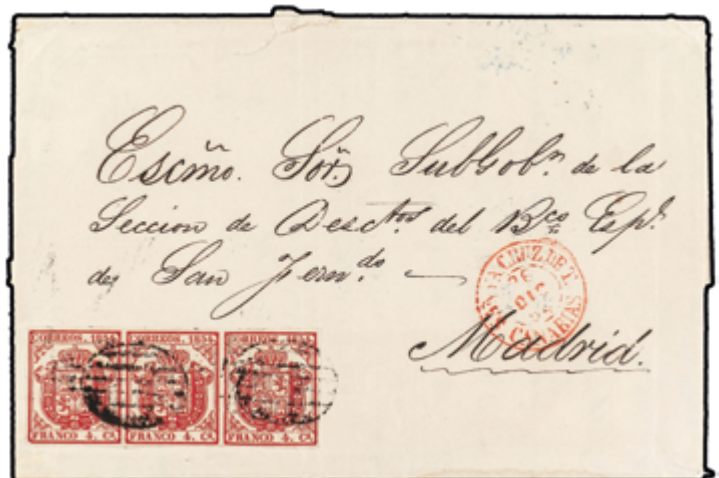 Escmõ. Sör. SubGobn. de la
Seccion de Desctos. del Bco. Espl.
de San Ferndo. —
Madrid.
STA CRUZ DE T.
26
DIC
CANARIAS
CORREOS. 1854 CORREOS. 1854 CORREOS. 1854
FRANCO 4. Cs FRANCO 4. Cs FRANCO 4. Cs